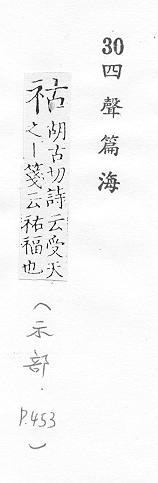 30 四聲篇海
祜 胡古切詩云受天
之丨箋云祜福也
(示部. P.453)